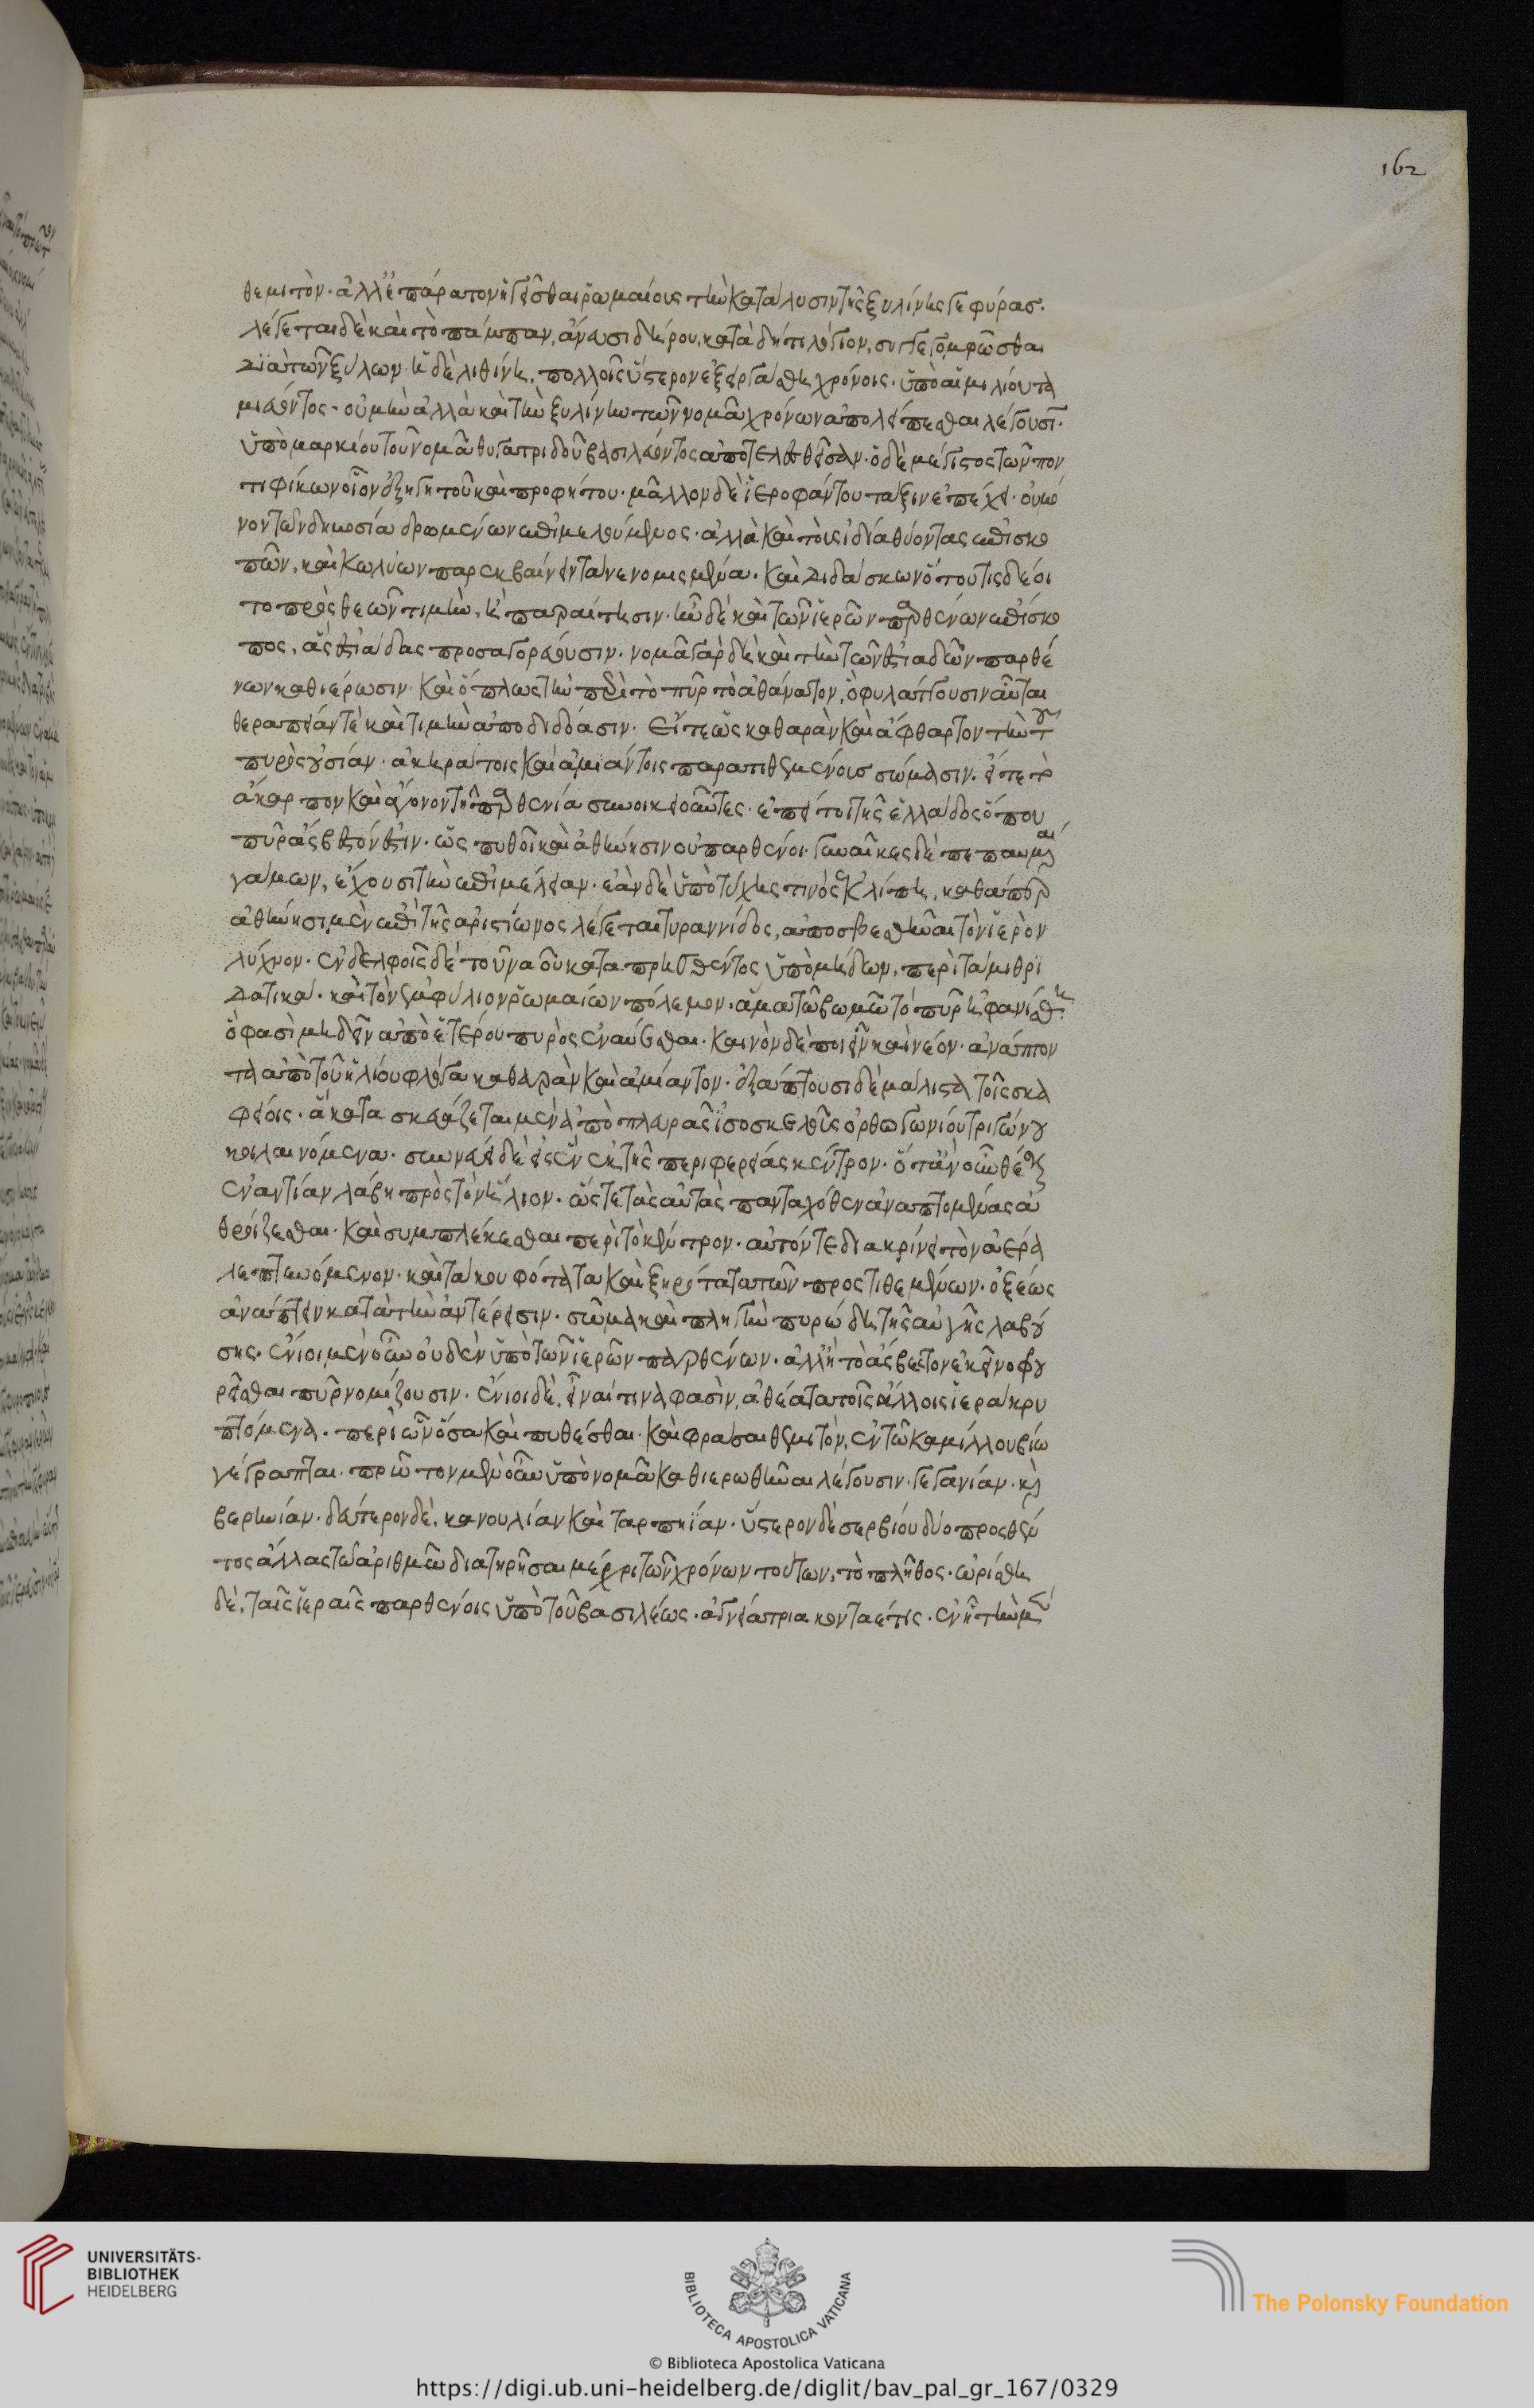 162
θεμιτὸν· ἀλλ' ἐπάρατον ἡγεῖσθαι ῥωμαίους τὴν κατάλυσιν τῆς ξυλίνης γεφύρας·
λέγεται δὲ καὶ τὸ πάμπαν, ἄνευ σιδήρου, κατὰ δή τι λόγιον, συγγεγομφῶσθαι
διὰ τῶν ξύλων· ἡ δὲ λιθίνη, πολλοῖς ὕστερον ἐξειργάσθη χρόνοις· ὑπὸ αἰμιλίου τα
μιεύοντος· οὐ μὴν ἀλλὰ καὶ τὴν ξυλίνην τῶν νομᾶ χρόνων ἀπολείπεσθαι λέγουσι·
ὑπὸ μαρκίου τοῦ νομᾶ θυγατριδοῦ βασιλεύοντος ἀποτελεσθεῖσαν· ὁ δὲ μέγιστος τῶν πον
τιφίκων οἷον ἐξηγητοῦ καὶ προφήτου· μᾶλλον δὲ ἱεροφάντου τάξιν ἐπέχει· οὐ μό
νον τῶν δημοσία δρωμένων ἐπιμελούμενος· ἀλλὰ καὶ τοὺς ἰδία θύοντας ἐπισκο
πῶν, καὶ κωλύων παρεκβαίνειν τὰ νενομισμένα· καὶ διδάσκων ὅτου τις δέοι
το πρὸς θεῶν τιμὴν, ἢ παραίτησιν· ἦν δὲ καὶ τῶν ἱερῶν παρθένων ἐπίσκο
πος, ἃς ἑστιάδας προσαγορεύουσιν· νομᾶ γὰρ δὴ καὶ τὴν τῶν ἑστιάδων παρθέ
νων καθιέρωσιν· καὶ ὅλως τὴν περὶ τὸ πῦρ τὸ ἀθάνατον, ὃ φυλάττουσιν αὗται
θεραπείαν τὲ καὶ τιμὴν ἀποδιδόασιν· εἴτε ὡς καθαρὰν καὶ ἄφθαρτον τὴν τοῦ
πυρὸς οὐσίαν· ἀκηράτοις καὶ ἀμιάντοις παρατιθεμένους σώμασιν· εἴτε τὸ
ἄκαρπον καὶ ἄγονον τῆ παρθενία συνοικειοῦντες· ἐπεί τοι τῆς ἑλλάδος ὅπου
πῦρ ἄσβεστόν ἐστιν· ὡς πυθοῖ καὶ ἀθήνησιν οὐ παρθένοι· γυναῖκες δὲ πεπαυμέναι
γάμων, ἔχουσι τὴν ἐπιμέλειαν· ἐὰν δὲ ὑπὸ τύχης τινὸς ἐκλίπη, καθάπερ
ἀθήνησι μὲν ἐπὶ τῆς ἀριστίωνος λέγεται τυραννίδος, ἀποσβεσθῆναι τὸν ἱερὸν
λύχνον· ἐν δελφοῖς δὲ τοῦ ναοῦ καταπρησθέντος ὑπὸ μήδων, περὶ τὰ μιθρι
δατικὰ· καὶ τὸν ἐμφύλιον ῥωμαίων πόλεμον· ἅμα τῶ βωμῶ τὸ πῦρ ἠφανίσθη
ὅ φασὶ μὴ δεῖν ἀπὸ ἑτέρου πυρὸς ἐναύεσθαι· καινὸν δὲ ποιεῖν καὶ νέον· ἀνάπτον
τα ἀπὸ τοῦ ἡλίου φλόγα καθαρὰν καὶ ἀμίαντον· ἐξάπτουσι δὲ μάλιστα τοῖς σκα
φείοις· ἃ κατασκευάζεται μὲν ἀπὸ πλευρᾶς ἰσοσκελοῦς ὀρθογωνίου τριγώνου
κοιλαινόμενα· συννεύει δὲ εἰς ἓν ἐκ τῆς περιφερείας κέντρον· ὅταν οὖν θέσιν
ἐναντίαν λάβη πρὸς τὸν ἥλιον· ὥστε τὰς αὐγὰς πανταχόθεν ἀνακοπτομένας ἀ
θροίζεσθαι· καὶ συμπλέκεσθαι περὶ τὸ κέντρον· αὐτόν τε διακρίνει τὸν ἀέρα
λεπτυνόμενον· καὶ τὰ κουφότατα καὶ ξηρότατα τῶν προστιθεμένων· ὀξέως
ἀνάπτειν κατὰ τὴν ἀντέρεισιν· σῶμα καὶ πληγὴν πυρώδη τῆς αὐγῆς λαβού
σης· ἔνιοι μὲν οὖν οὐδὲν ὑπὸ τῶν ἱερῶν παρθένων· ἀλλ' ἢ τὸ ἄσβεστον ἐκεῖνο φυ
ρεῖσθαι πῦρ νομίζουσιν· ἔνιοι δὲ, εἶναί τινα φασὶν, ἀθέατα τοῖς ἄλλοις ἱερὰ κρυ
πτόμενα· περὶ ὧν ὅσα καὶ πυθέσθαι· καὶ φράσαι θεμιτὸν, ἐν τῶ καμίλλου βίω
γέγραπται· πρῶτον μὲν οὖν ὑπὸ νομᾶ καθιερωθῆναι λέγουσιν· γεγανίαν· καὶ
βερηνίαν· δεύτερον δὲ, κανουλίαν καὶ ταρπηίαν· ὕστερον δὲ σερβίου δύο προσθέν
τος ἄλλας τῶ ἀριθμῶ διατηρῆσαι μέχρι τῶν χρόνων τούτων, τὸ πλῆθος· ὡρίσθη
δὲ, ταῖς ἱεραῖς παρθένοις ὑπὸ τοῦ βασιλέως· ἁγνεία τριακονταέτις· ἐν ἧ τὴν μὲν
UNIVERSITÄTS-
BIBLIOTHEK
HEIDELBERG
BIBLIOTECA APOSTOLICA VATICANA
The Polonsky Foundation
© Biblioteca Apostolica Vaticana
https://digi.ub.uni-heidelberg.de/diglit/bav_pal_gr_167/0329